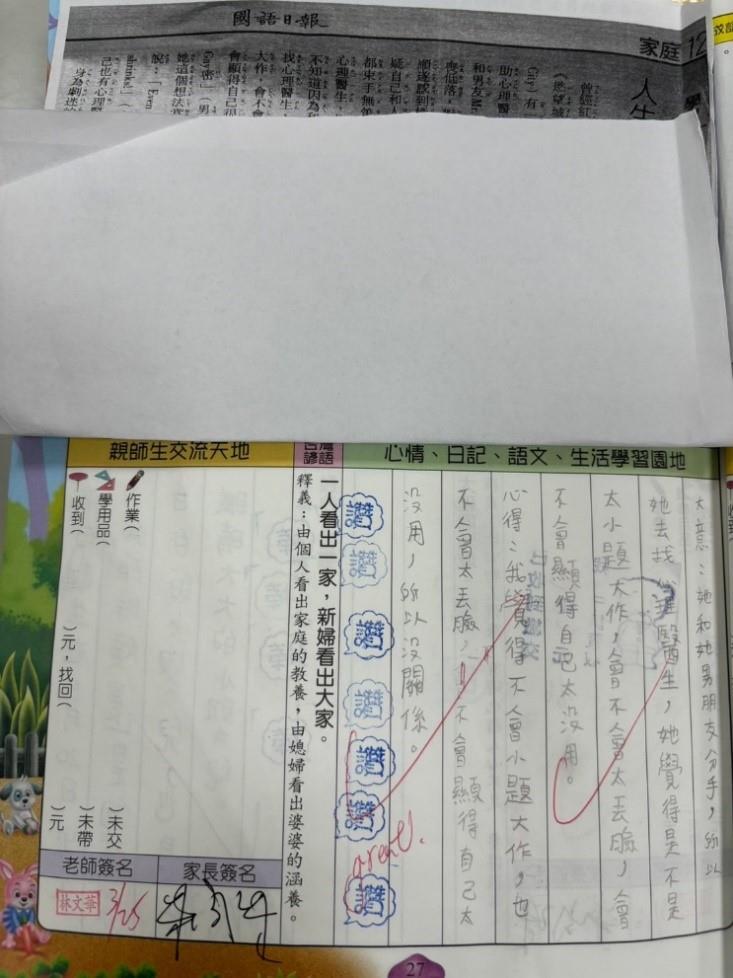 國語日報
家庭 12
人生
曾經紅
City）有
《慾望城
助心理醫
和男友M
喪低落，
順遂感到
疑自己和人
都束手無策
心理醫生，
不知道因為和
找心理醫生，
大作，會不會
會顯得自己很
Gay密」（男
她這個想法
說：「Even
shrinks!」（
己也有心理醫
身為劇迷的
心情、日記、語文、生活學習園地
大意：她和她男朋友分手，所以
她去找心理醫生，她覺得是不是
太小題大作，會不會太丟臉，會
不會顯得自己太沒用。
心得：我覺得不會小題大作，也
不會太丟臉，也不會顯得自己太
沒用，所以沒關係。
讚
讚
讚
讚
讚
讚
讚
great!
台灣諺語
一人看出一家，新婦看出大家。
釋義：由個人看出家庭的教養，由媳婦看出婆婆的涵養。
親師生交流天地
作業（ ）未交
學用品（ ）未帶
收到（ ）元，找回（ ）元
家長簽名
老師簽名
林文華
3/25
27